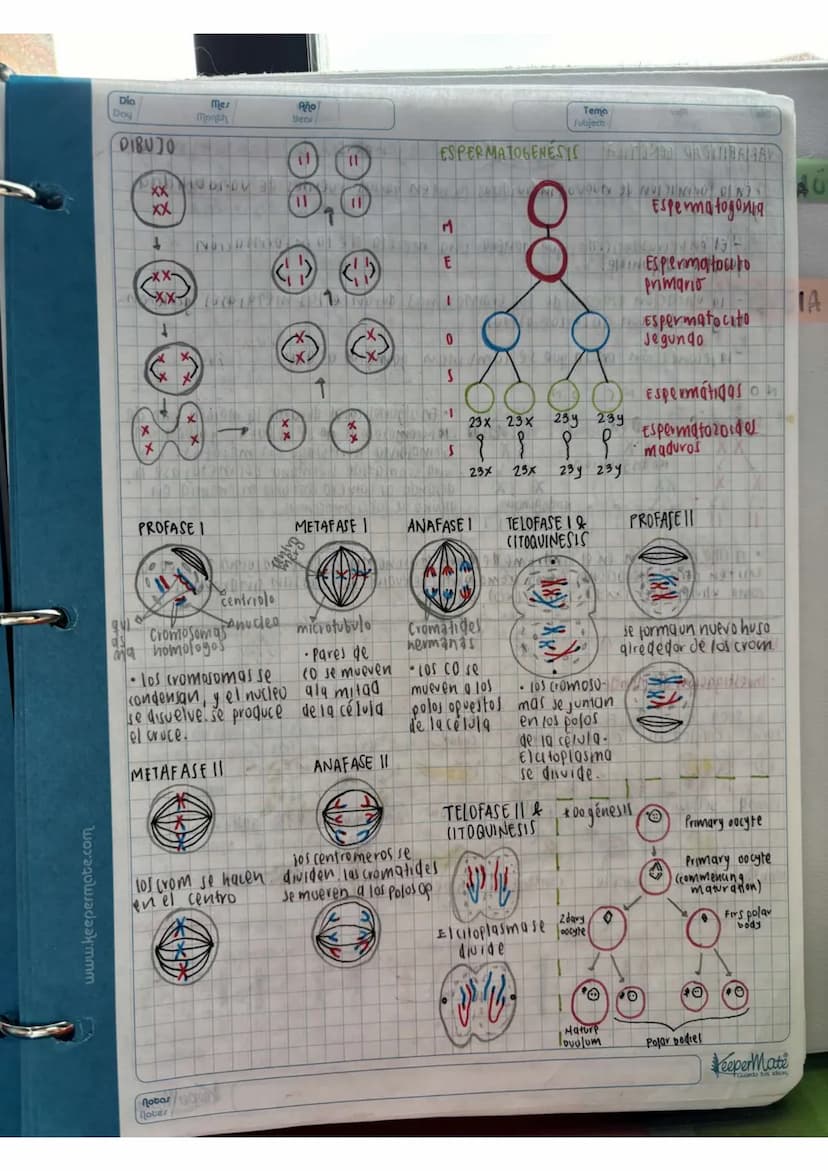 Día
Day
Mes
Month
Año
Year
Tema
Subject
DIBUJO
ESPERMATOGENÉSIS
MEIOSIS
Espermatogonia
Espermatocito
primario
Espermatocito
segundo
Espermátidas
23x 23x 23y 23y
Espermatozoides
maduros
23x 23x 23y 23y
PROFASE I
centriolo
núcleo
Cromosomas
homologos
• los cromosomas se
condensan, y el nucleo
se disuelve. se produce
el cruce.
METAFASE I
microtubulo
• Pares de
CO se mueven
a la mitad
de la célula
ANAFASE I
Cromátides
hermanas
• los CO se
mueven a los
polos opuestos
de la célula
TELOFASE I &
CITOQUINESIS
• los cromoso-
mas se juntan
en los polos
de la célula.
El citoplasma
se divide.
PROFASE II
se forma un nuevo huso
alrededor de los crom
METAFASE II
los crom se hacen
en el centro
ANAFASE II
los centromeros se
dividen, las cromátides
se mueven a los polos op
TELOFASE II &
CITOQUINESIS
El citoplasma se
divide
* Oogénesis
Primary oocyte
Primary oocyte
(commencing
maturation)
2dary
oocyte
Firs polar
body
Mature
ovulum
Polar bodies
www.keepermate.com
KeeperMate
Notas
Notes